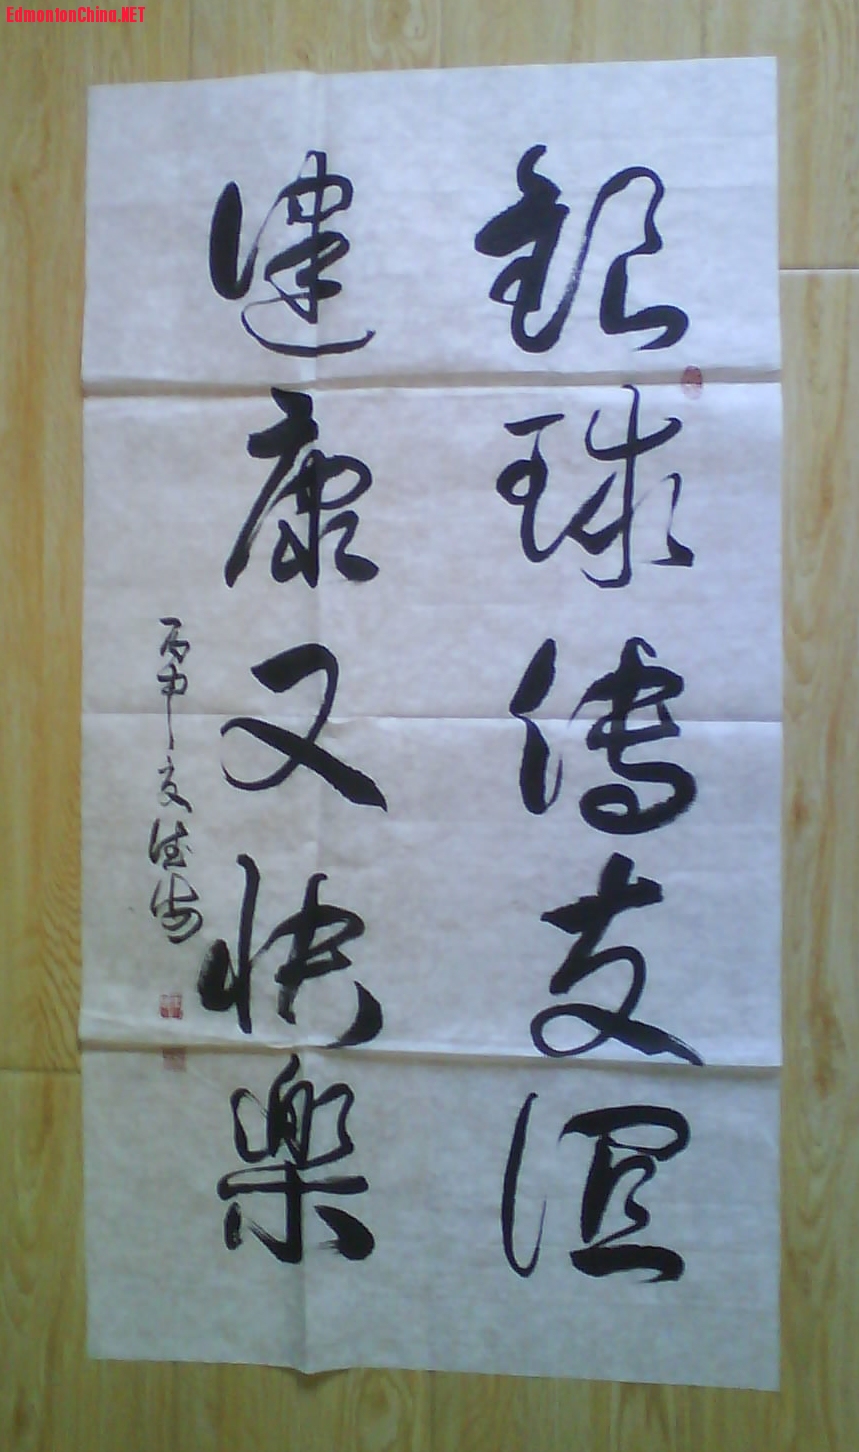 EdmontonChina.NET
銀球傳友誼
健康又快樂
丙申